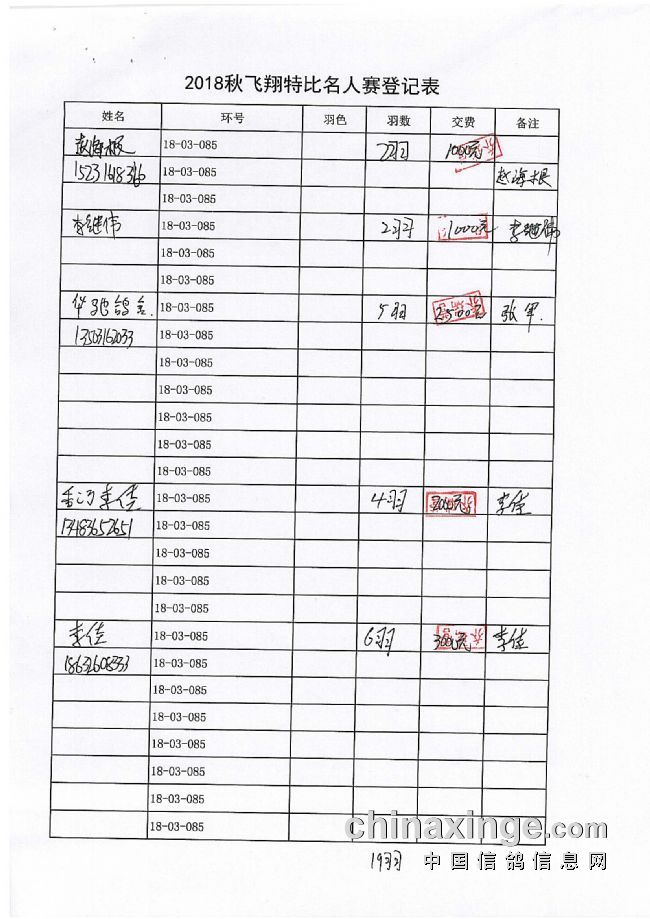 2018秋飞翔特比名人赛登记表
姓名 环号 羽色 羽数 交费 备注
赵海根 18-03-085 2羽 1000元
18-03-085 赵海根
18-03-085
李继伟 18-03-085 2羽 1000元 李继伟
18-03-085
18-03-085
18-03-085 5羽 2500元 张军.
13503162033 18-03-085
18-03-085
18-03-085
18-03-085
18-03-085
18-03-085
香河李佳 18-03-085 4羽 李佳
13483652651 18-03-085
18-03-085
18-03-085
18-03-085
李佳 18-03-085 6羽 3000元 李佳
18-03-085
18-03-085
18-03-085
18-03-085
18-03-085
18-03-085
18-03-085
chinaxinge.com
19羽 中国信鸽信息网